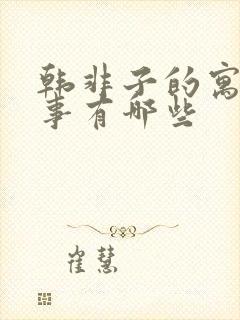 韩非子的寓
事有哪些
崔慧